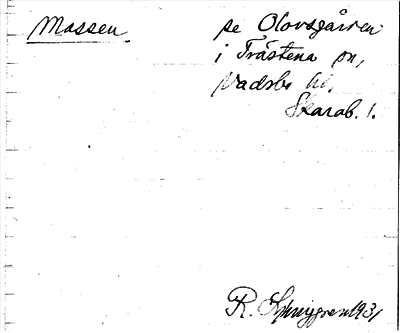 Massen
se Olovsgården
i Trästena sn,
Vadsbo hd,
Skarab. l.
R. Ljunggren 1931